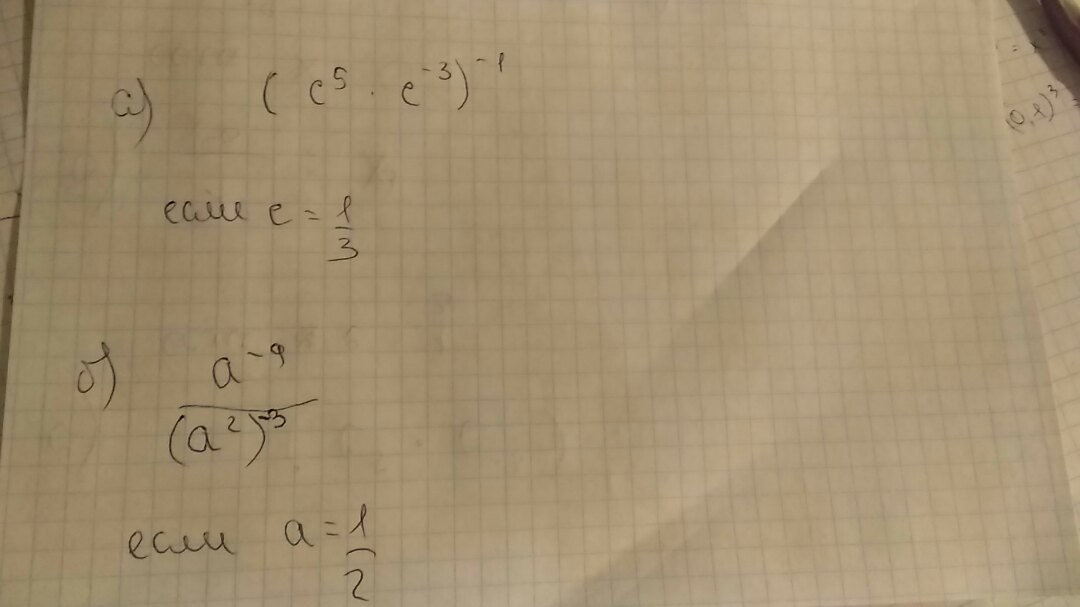 а) (c⁵ · c⁻³)⁻¹
если c = 1/3
б) a⁻⁹/(a²)⁻³
если a = 1/2
(0,1)³ =